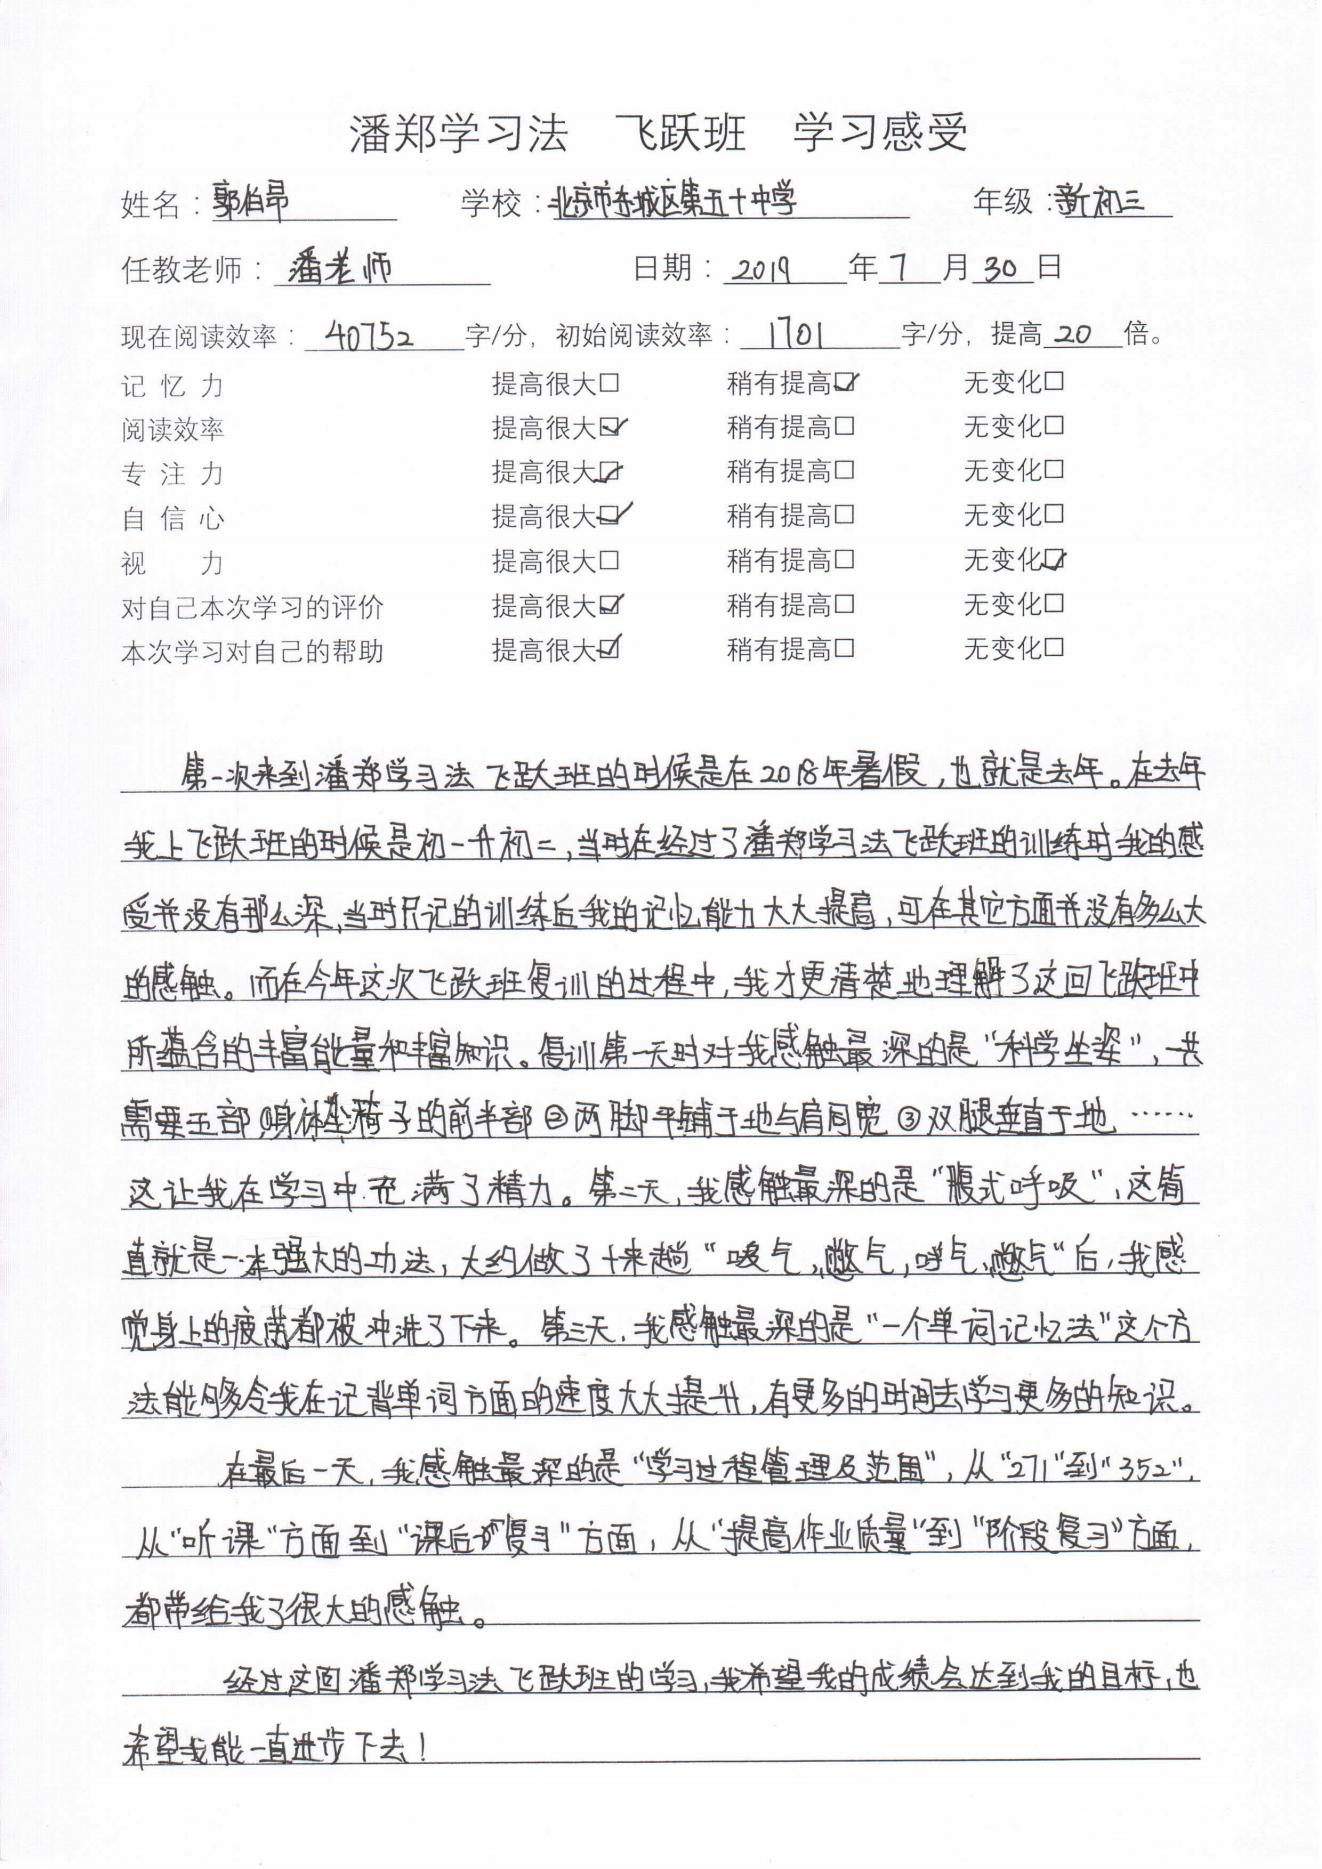 潘郑学习法 飞跃班 学习感受
姓名：郭伯昂 学校：北京市东城区第五十中学 年级：新初三
任教老师：潘老师 日期：2019年7月30日
现在阅读效率：40752字/分，初始阅读效率：1701字/分，提高20倍。
记忆力 提高很大□ 稍有提高☑ 无变化□
阅读效率 提高很大☑ 稍有提高□ 无变化□
专注力 提高很大☑ 稍有提高□ 无变化□
自信心 提高很大☑ 稍有提高□ 无变化□
视力 提高很大□ 稍有提高□ 无变化☑
对自己本次学习的评价 提高很大☑ 稍有提高□ 无变化□
本次学习对自己的帮助 提高很大☑ 稍有提高□ 无变化□
第一次来到潘郑学习法飞跃班的时候是在2018年暑假，也就是去年。在去年
我上飞跃班的时候是初一升初二，当时在经过了潘郑学习法飞跃班的训练时我的感
受并没有那么深，当时只记的训练后我的记忆能力大大提高，可在其它方面并没有多么大
的感触。而在今年这次飞跃班复训的过程中，我才更清楚地理解了这回飞跃班中
所蕴含的丰富能量和丰富知识。复训第一天时对我感触最深的是“科学坐姿”，一共
需要五部①身体坐椅子的前半部②两脚平铺于地与肩同宽③双腿垂直于地……
这让我在学习中充满了精力。第二天，我感触最深的是“腹式呼吸”，这简
直就是一本强大的功法，大约做了十来趟“吸气，憋气，呼气，憋气”后，我感
觉身上的疲惫都被冲洗了下来。第三天，我感触最深的是“一个单词记忆法”这个方
法能够令我在记背单词方面的速度大大提升，有更多的时间去学习更多的知识。
在最后一天，我感触最深的是“学习过程管理及范围”，从“271”到“352”，
从“听课”方面到“课后复习”方面，从“提高作业质量”到“阶段复习”方面，
都带给我了很大的感触。
经过这回潘郑学习法飞跃班的学习，我希望我的成绩会达到我的目标，也
希望我能一直进步下去！